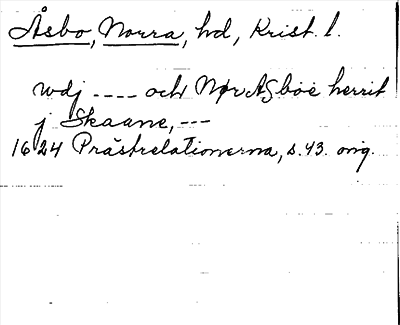 Åsbo, Norra, hd, Krist. l.
wdj ---- och Nør Asboe herrit
j Skaane, ---
1624 Prästrelationerna, s. 43. orig.